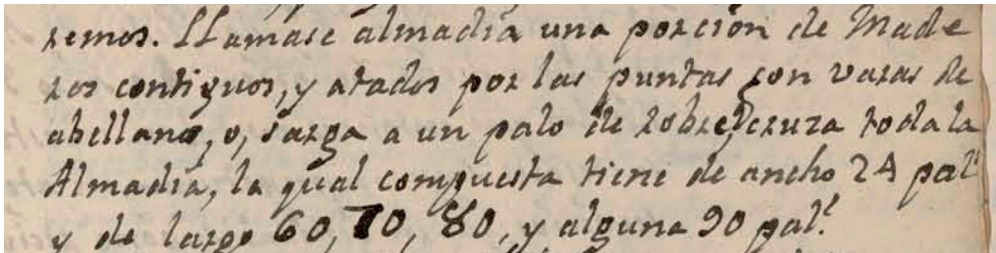 remos. Llamase almadía una porcion de Made
ros contiguos, y atados por las puntas con varas de
abellano, o, sarga a un palo de robre, q cruza toda la
Almadía, la qual compuesta tiene de ancho 24 pals
y de largo 60, 70, 80, y alguna 90 pals.